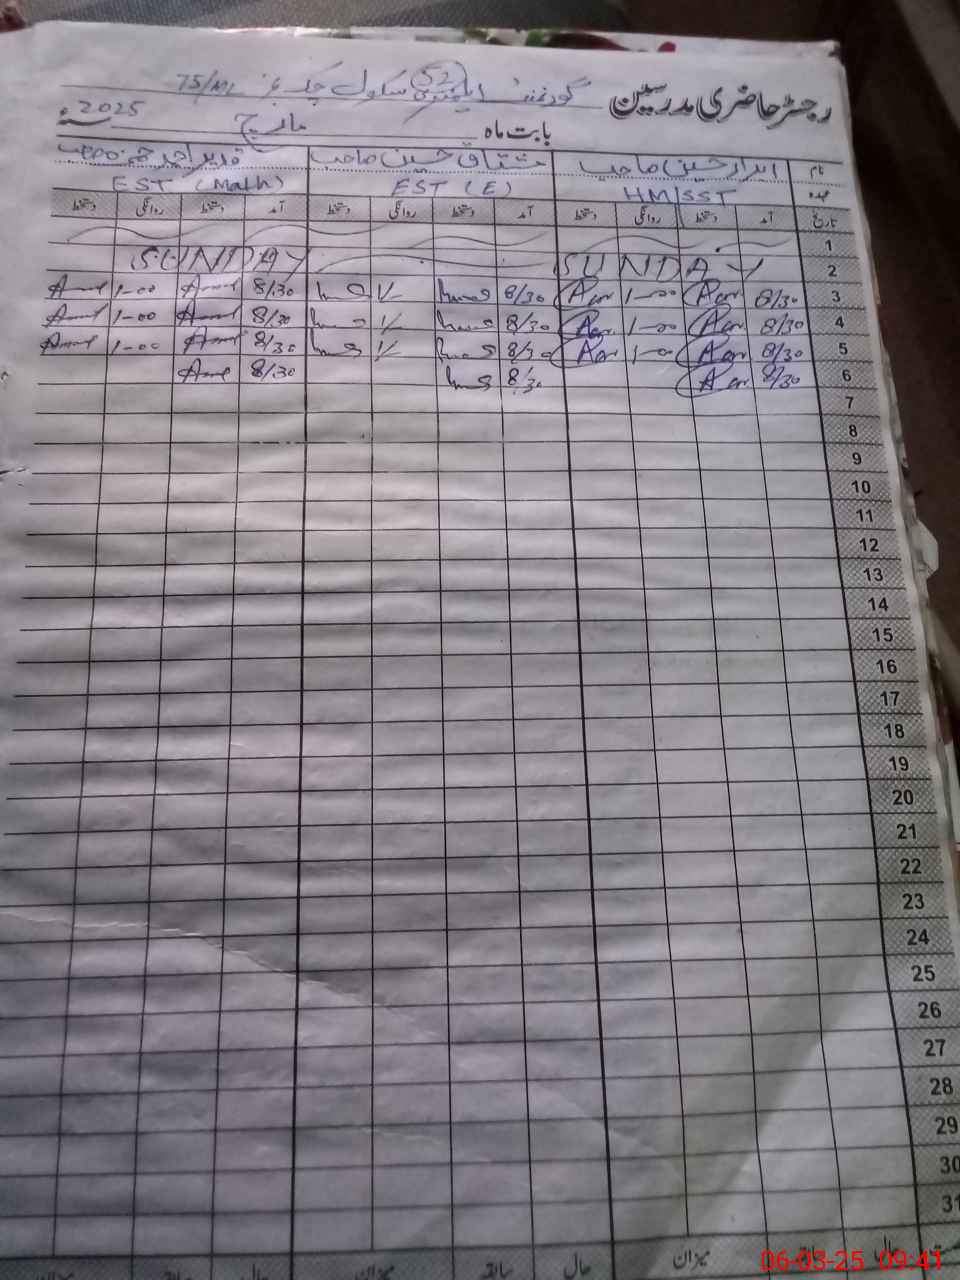 رجسٹر حاضری مدرسین گورنمنٹ ایلیمنٹری سکول چک نمبر 75/ML
52
بابت ماہ مارچ سنہ 2025ء
نام ابرار حسین صاحب مشتاق حسین صاحب قدیر احمد صاحب
عہدہ HM/SST EST (E) EST (Math)
تاریخ آمد دستخط روانگی دستخط آمد دستخط روانگی دستخط آمد دستخط روانگی دستخط
1
2 SUNDAY SUNDAY
3 8/30 1-00 8/30 1/- 8/30 1-00
4 8/30 1-00 8/30 1/- 8/30 1-00
5 8/30 1-00 8/30 1/- 8/30 1-00
6 8/30 8/30 8/30
7
8
9
10
11
12
13
14
15
16
17
18
19
20
21
22
23
24
25
26
27
28
29
30
31
حال میزان حال سابقہ میزان حال
06-03-25 09:41